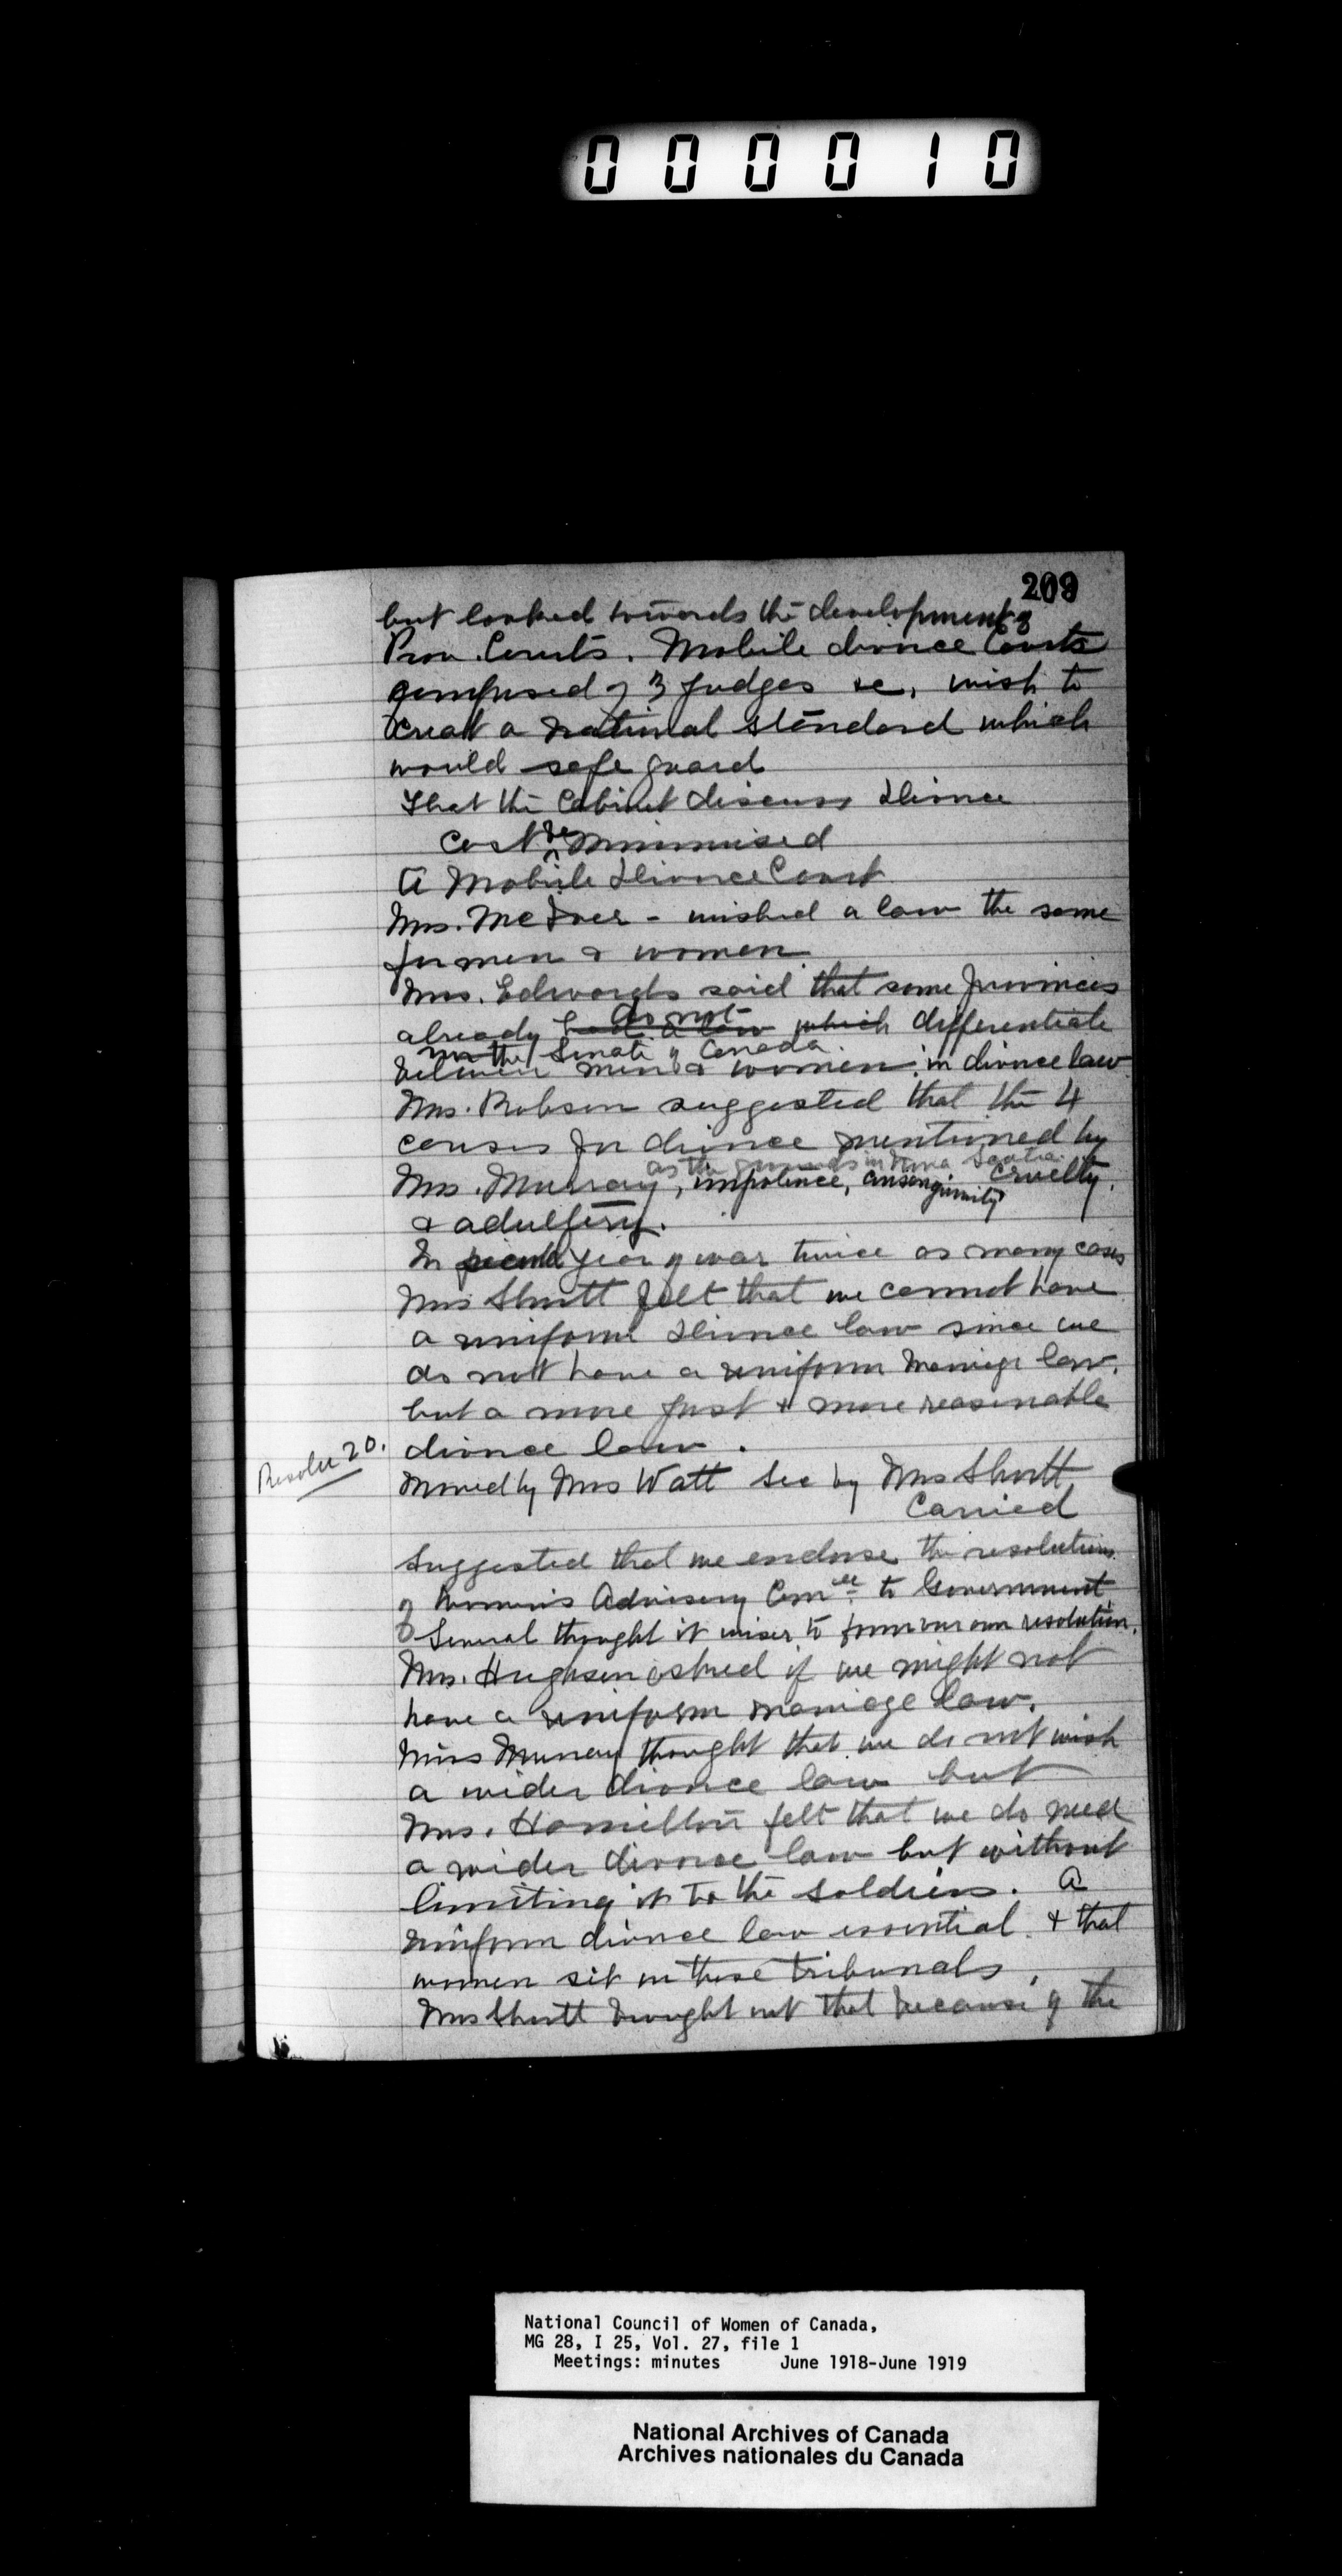 000010
209
but looked towards the development of
Prov. Courts. Mobile divorce Courts
composed of 3 judges &c, wish to
creat a national standard which
would safe guard
That the Cabinet discuss Divorce
Cost be minimised
A Mobile Divorce Court
Mrs. McIver - wished a law the same
for men & women
Mrs. Edwards said that some provinces
do not
already had a law which differentiate
the Senate of Canada.
between men & women in divorce law
Mrs. Robson suggested that the 4
causes for divorce mentioned by
as the grounds in Nova Scotia
Mrs. Murray, impotence, consanguinity cruelty,
& adultery.
In year of war twice as many cases
Mrs Shortt felt that we cannot have
a uniform Divorce law since we
do not have a uniform Marriage law,
but a more just & more reasonable
divorce law.
Resolu 20.
Moved by Mrs Watt Sec by Mrs Shortt
Carried
Suggested that we endorse the resolutions
of Women's Advisory Com^ee to Government
Several thought it wiser to form our own resolution.
Mrs. Hughson asked if we might not
have a uniform marriage law.
Miss Murray thought that we do not wish
a wider divorce law but
Mrs. Hamilton felt that we do need
a wider divorce law but without
limiting it to the soldiers. A
uniform divorce law essential & that
women sit on these tribunals,
Mrs Shortt brought out that because of the
National Council of Women of Canada,
MG 28, I 25, Vol. 27, file 1
Meetings: minutes June 1918-June 1919
National Archives of Canada
Archives nationales du Canada